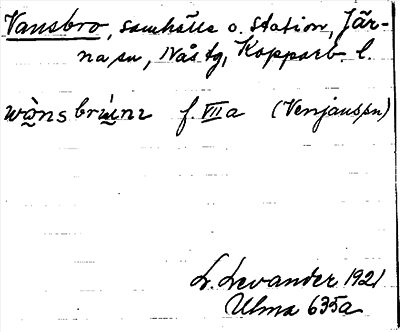 Vansbro, samhälle o. station, Jär-
na sn, Nås tg, Kopparb. l.
wå̀nsbrúnz f. VII a (Venjans sn)
L. Levander 1921
Ulma 635a